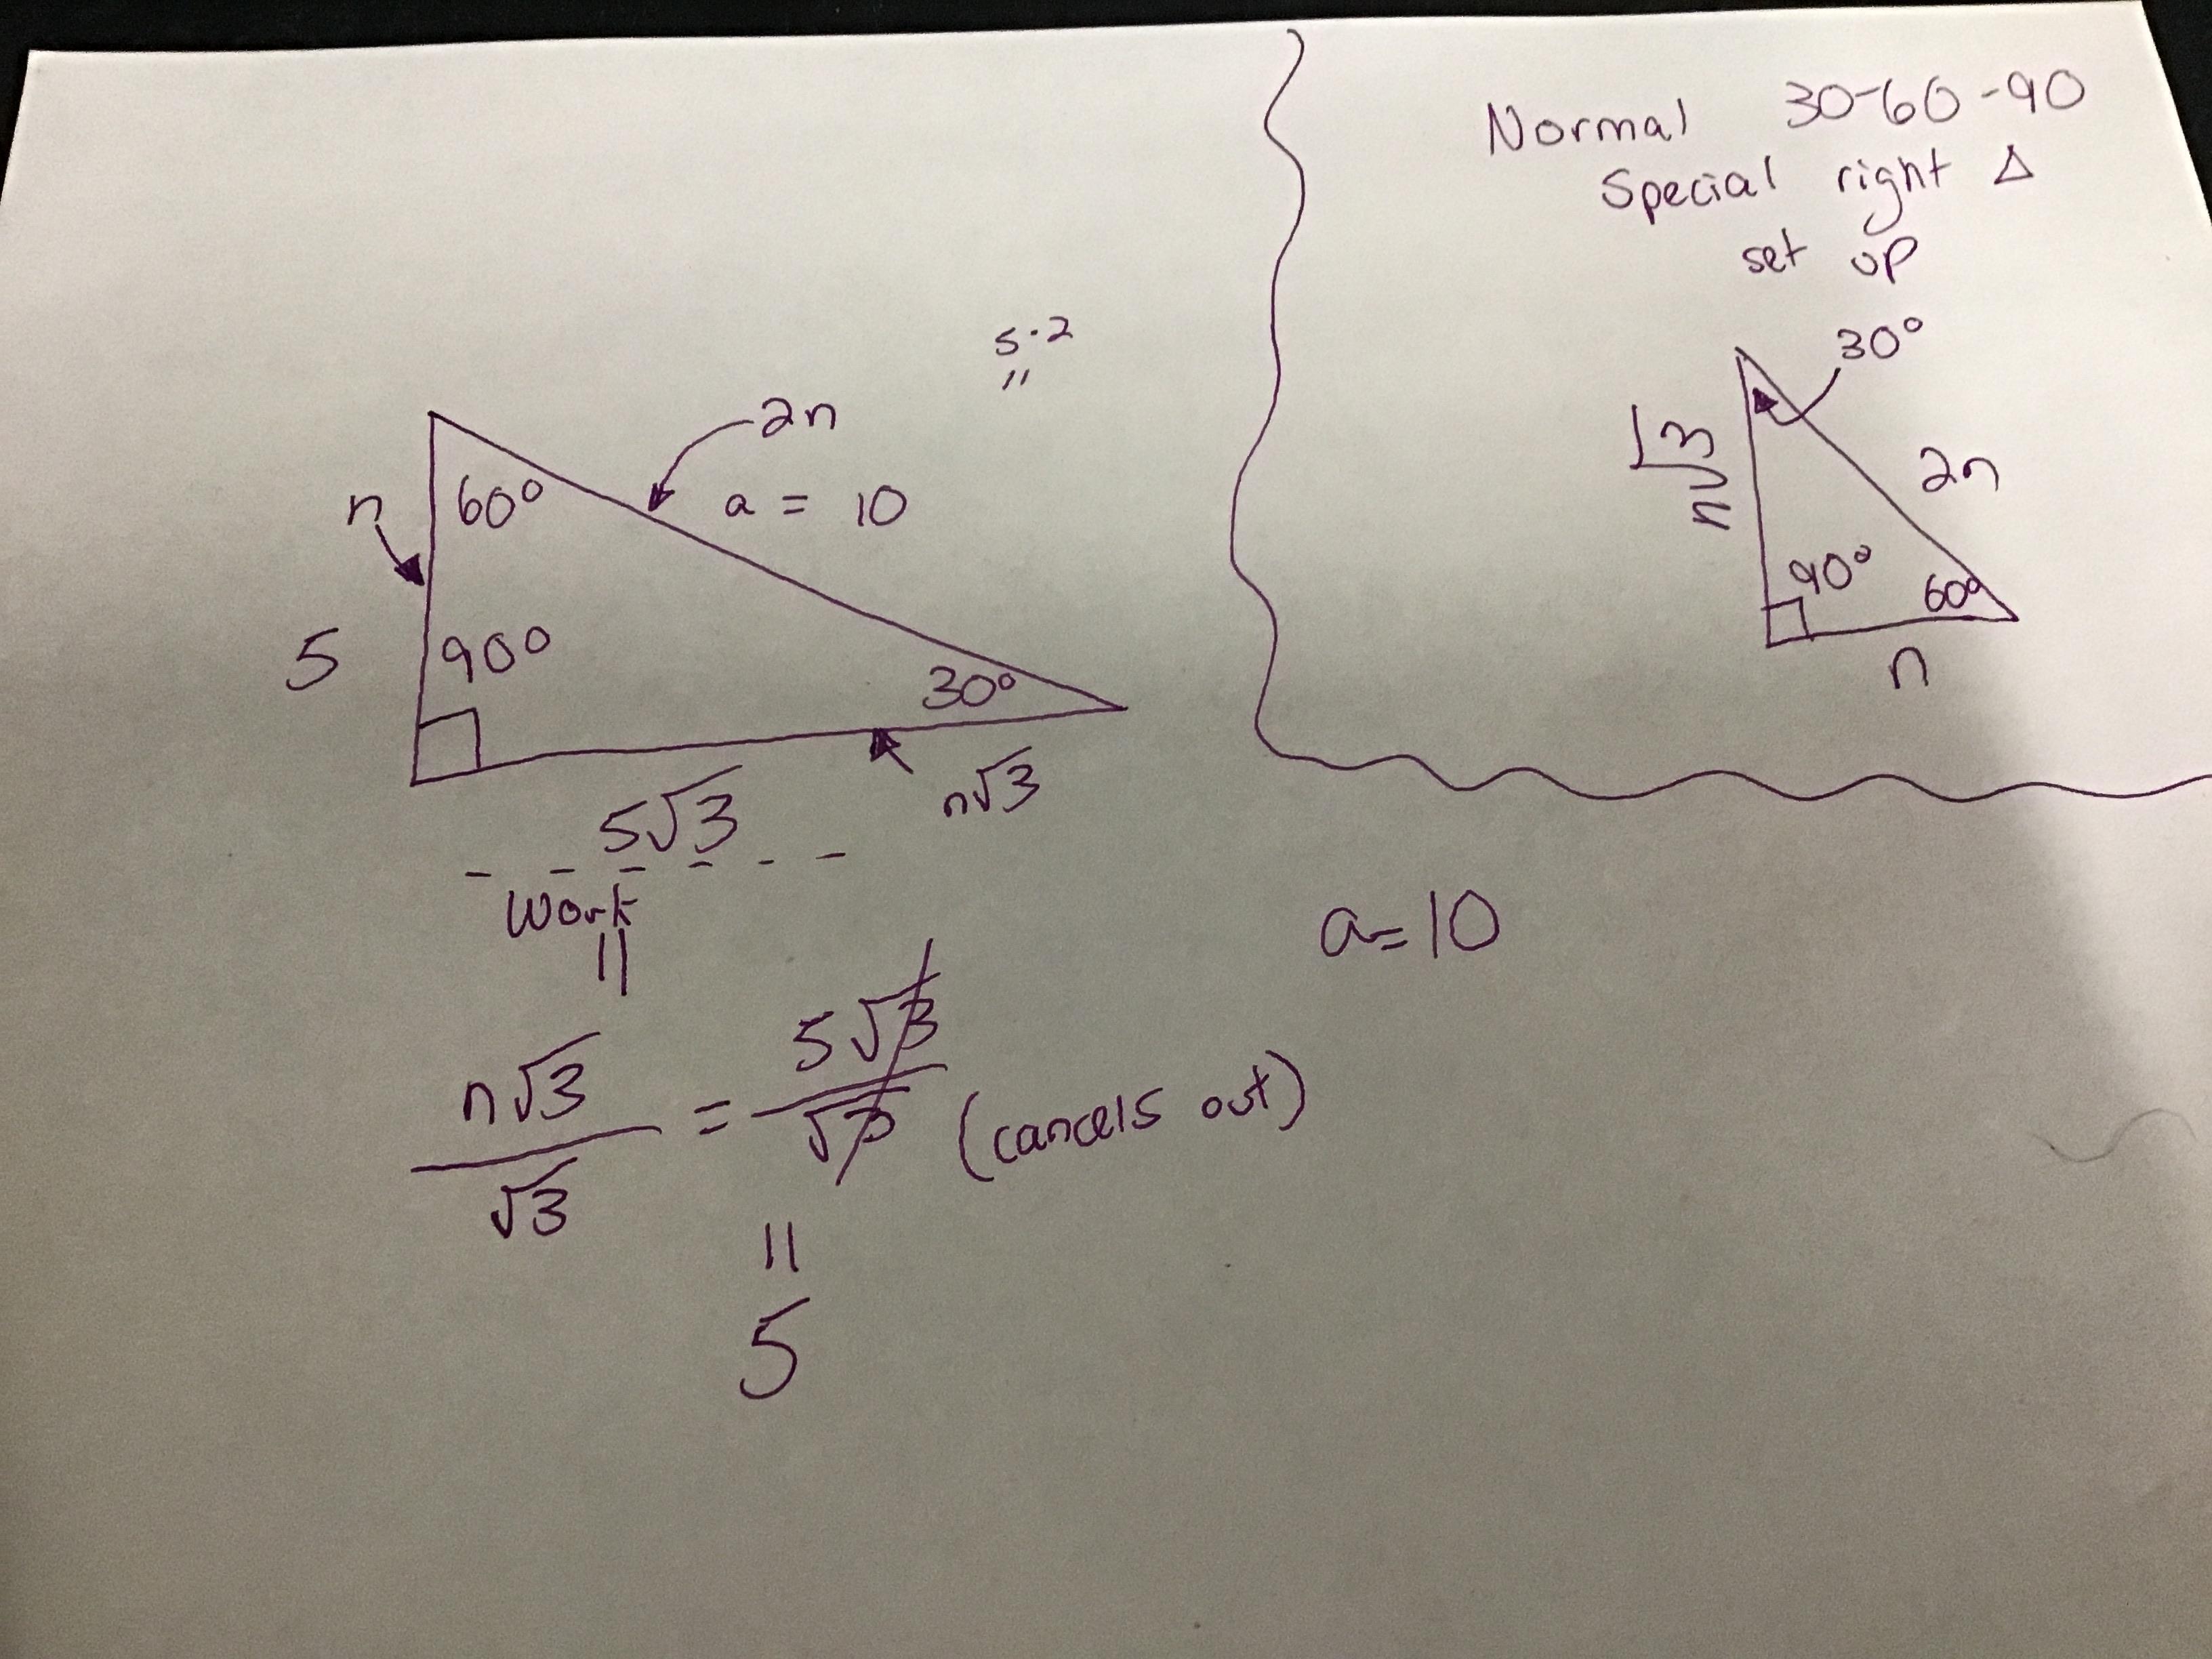 Normal 30-60-90
Special right Δ
set up
30°
n√3
2n
90°
60°
n
5·2
"
2n
n
60°
a = 10
5
90°
30°
5√3
n√3
Work
||
n√3/√3 = 5√3/√3 (cancels out)
||
5
a=10